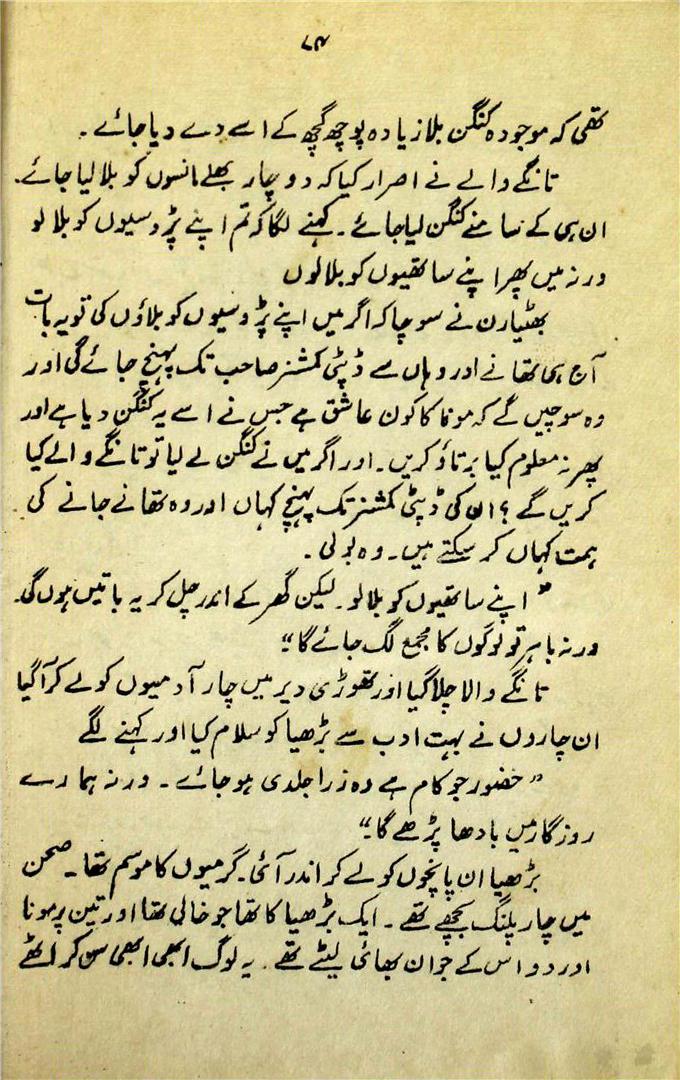 ۷۴
تھی کہ موجودہ کنگن بلا زیادہ پوچھ گچھ کے اسے دے دیا جائے۔
تانگے والے نے اصرار کیا کہ دو چار بھلے مانسوں کو بلا لیا جائے۔
ان ہی کے سامنے کنگن لیا جائے۔ کہنے لگا کہ تم اپنے پڑوسیوں کو بلا لو
ورنہ میں پھر اپنے ساتھیوں کو بلا لوں
بھٹیارن نے سوچا کہ اگر میں اپنے پڑوسیوں کو بلاؤں گی تو یہ بات
آج ہی تھانے اور وہاں سے ڈپٹی کمشنر صاحب تک پہنچ جائے گی اور
وہ سوچیں گے کہ مونا کا کون عاشق ہے جس نے اسے یہ کنگن دیا ہے اور
پھر نہ معلوم کیا برتاؤ کریں۔ اور اگر میں نے کنگن لے لیا تو تانگے والے کیا
کریں گے؟ ان کی ڈپٹی کمشنر تک پہنچ کہاں اور وہ تھانے جانے کی
ہمت کہاں کر سکتے ہیں۔ وہ بولی۔
"اپنے ساتھیوں کو بلا لو۔ لیکن گھر کے اندر چل کر یہ باتیں ہوں گی۔
ورنہ باہر تو لوگوں کا مجمع لگ جائے گا"
تانگے والا چلا گیا اور تھوڑی دیر میں چار آدمیوں کو لے کر آ گیا
ان چاروں نے بہت ادب سے بڑھیا کو سلام کیا اور کہنے لگے
"حضور جو کام ہے وہ ذرا جلدی ہو جائے۔ ورنہ ہمارے
روزگار میں بادھا پڑھے گا"
بڑھیا ان پانچوں کو لے کر اندر آئی۔ گرمیوں کا موسم تھا۔ صحن
میں چار پلنگ بچھے تھے۔ ایک بڑھیا کا تھا جو خالی تھا اور تین پر مونا
اور دو اس کے جوان بھائی لیٹے تھے۔ یہ لوگ ابھی ابھی سن کر اٹھے